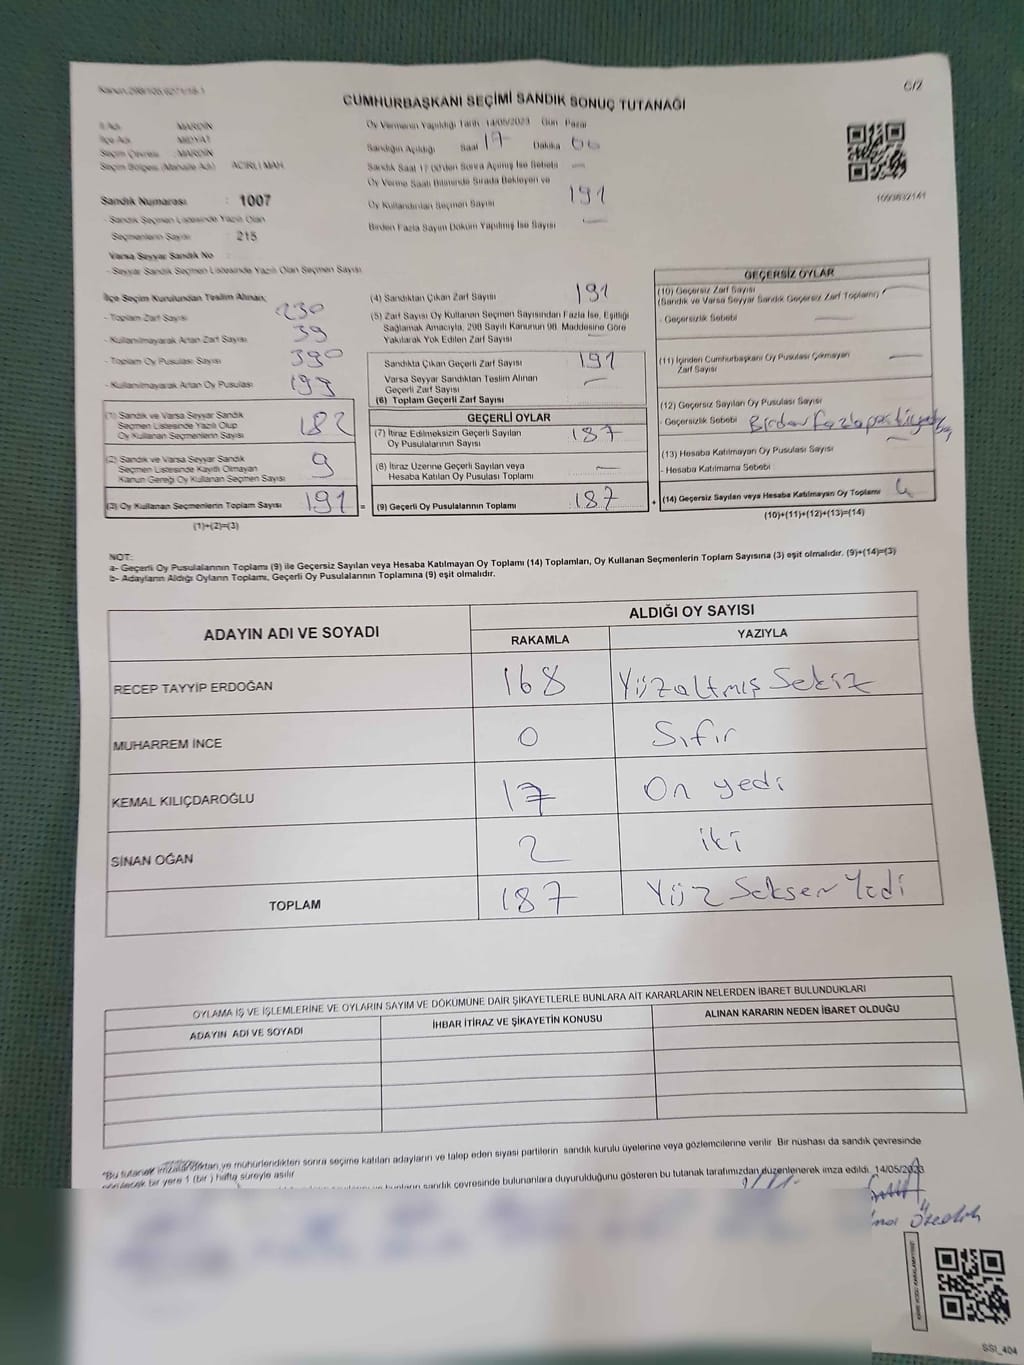 CUMHURBAŞKANI SEÇİMİ SANDIK SONUÇ TUTANAĞI
6/2
İl Adı : MARDİN
İlçe Adı : MİDYAT
Seçim Çevresi : MARDİN
Seçim Bölgesi (Mahalle Adı) : ACIRLI MAH.
Sandık Numarası : 1007
- Sandık Seçmen Listesinde Yazılı Olan
Seçmenlerin Sayısı : 215
Varsa Seyyar Sandık No
- Seyyar Sandık Seçmen Listesinde Yazılı Olan Seçmen Sayısı
Oy Vermenin Yapıldığı Tarih 14/05/2023 Gün Pazar
Sandığın Açıldığı Saat 17 Dakika 00
Sandık Saat 17:00'den Sonra Açılmış İse Sebebi —
Oy Verme Saati Bitiminde Sırada Bekleyen ve
Oy Kullandırılan Seçmen Sayısı 191
Birden Fazla Sayım Döküm Yapılmış İse Sayısı —
İlçe Seçim Kurulundan Teslim Alınan;
- Toplam Zarf Sayısı 230
- Kullanılmayarak Artan Zarf Sayısı 39
- Toplam Oy Pusulası Sayısı 390
- Kullanılmayarak Artan Oy Pusulası 199
(1) Sandık ve Varsa Seyyar Sandık
Seçmen Listesinde Yazılı Olup
Oy Kullanan Seçmenlerin Sayısı 182
(2) Sandık ve Varsa Seyyar Sandık
Seçmen Listesinde Kayıtlı Olmayan
Kanun Gereği Oy Kullanan Seçmen Sayısı 9
(3) Oy Kullanan Seçmenlerin Toplam Sayısı 191
(1)+(2)=(3)
(4) Sandıktan Çıkan Zarf Sayısı 191
(5) Zarf Sayısı Oy Kullanan Seçmen Sayısından Fazla İse, Eşitliği
Sağlamak Amacıyla, 298 Sayılı Kanunun 98. Maddesine Göre
Yakılarak Yok Edilen Zarf Sayısı
Sandıkta Çıkan Geçerli Zarf Sayısı 191
Varsa Seyyar Sandıktan Teslim Alınan
Geçerli Zarf Sayısı —
(6) Toplam Geçerli Zarf Sayısı
GEÇERLİ OYLAR
(7) İtiraz Edilmeksizin Geçerli Sayılan
Oy Pusulalarının Sayısı 187
(8) İtiraz Üzerine Geçerli Sayılan veya
Hesaba Katılan Oy Pusulası Toplamı —
= (9) Geçerli Oy Pusulalarının Toplamı 187 +
GEÇERSİZ OYLAR
(10) Geçersiz Zarf Sayısı
(Sandık ve Varsa Seyyar Sandık Geçersiz Zarf Toplamı)
- Geçersizlik Sebebi —
(11) İçinden Cumhurbaşkanı Oy Pusulası Çıkmayan
Zarf Sayısı —
(12) Geçersiz Sayılan Oy Pusulası Sayısı
- Geçersizlik Sebebi Birden fazla
(13) Hesaba Katılmayan Oy Pusulası Sayısı
- Hesaba Katılmama Sebebi
(14) Geçersiz Sayılan veya Hesaba Katılmayan Oy Toplamı 4
(10)+(11)+(12)+(13)=(14)
NOT:
a- Geçerli Oy Pusulalarının Toplamı (9) ile Geçersiz Sayılan veya Hesaba Katılmayan Oy Toplamı (14) Toplamları, Oy Kullanan Seçmenlerin Toplam Sayısına (3) eşit olmalıdır. (9)+(14)=(3)
b- Adayların Aldığı Oyların Toplamı, Geçerli Oy Pusulalarının Toplamına (9) eşit olmalıdır.
ADAYIN ADI VE SOYADI ALDIĞI OY SAYISI
RAKAMLA YAZIYLA
RECEP TAYYİP ERDOĞAN 168 Yüzaltmış Sekiz
MUHARREM İNCE 0 Sıfır
KEMAL KILIÇDAROĞLU 17 On yedi
SİNAN OĞAN 2 iki
TOPLAM 187 Yüz Seksen Yedi
OYLAMA İŞ VE İŞLEMLERİNE VE OYLARIN SAYIM VE DÖKÜMÜNE DAİR ŞİKAYETLERLE BUNLARA AİT KARARLARIN NELERDEN İBARET BULUNDUKLARI
ADAYIN ADI VE SOYADI İHBAR İTİRAZ VE ŞİKAYETİN KONUSU ALINAN KARARIN NEDEN İBARET OLDUĞU
*Bu tutanak imzalandıktan ve mühürlendikten sonra seçime katılan adayların ve talep eden siyasi partilerin sandık kurulu üyelerine veya gözlemcilerine verilir. Bir nüshası da sandık çevresinde
görülecek bir yere 1 (bir) hafta süreyle asılır.
sandık çevresinde bulunanlara duyurulduğunu gösteren bu tutanak tarafımızdan düzenlenerek imza edildi. 14/05/2023
SSI_404